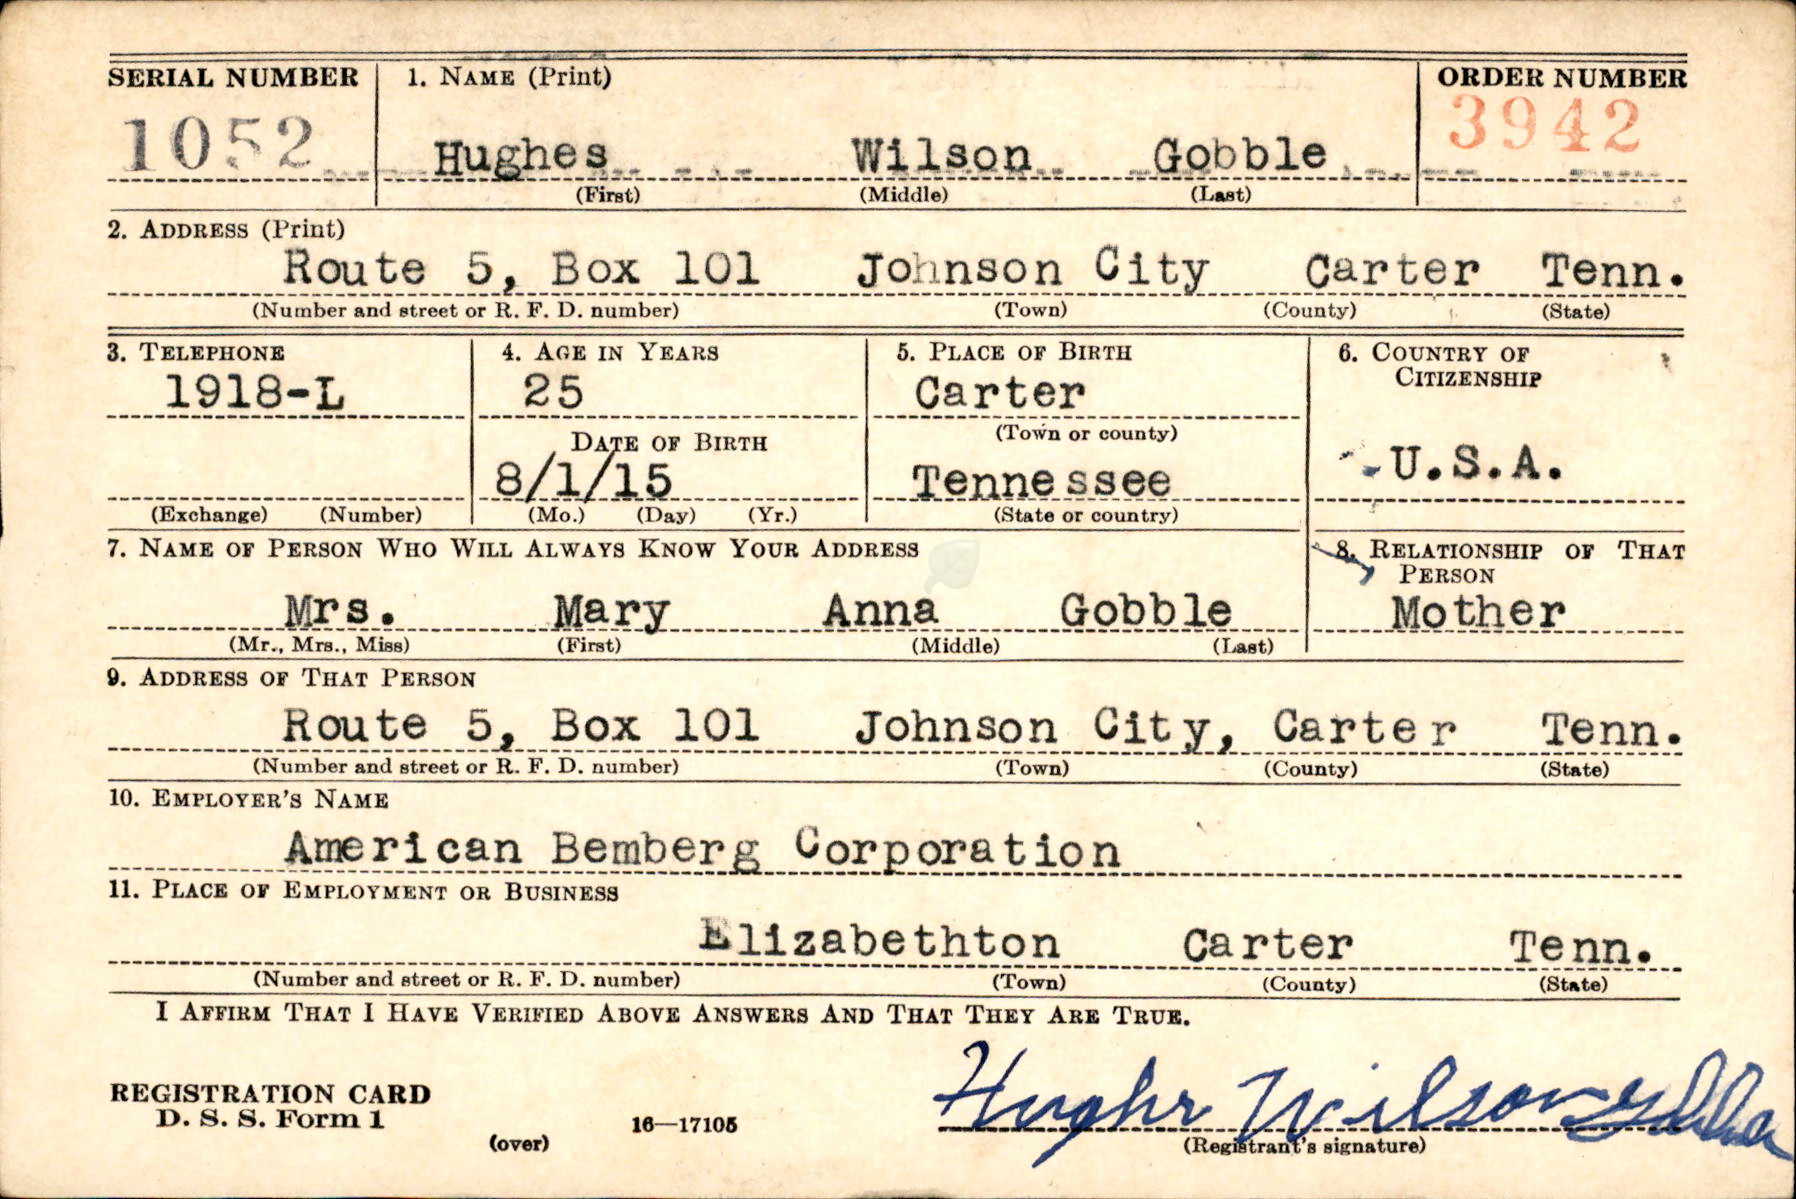 SERIAL NUMBER 1. NAME (Print) ORDER NUMBER
1052 Hughes Wilson Gobble 3942
(First) (Middle) (Last)
2. ADDRESS (Print)
Route 5, Box 101 Johnson City Carter Tenn.
(Number and street or R. F. D. number) (Town) (County) (State)
3. TELEPHONE 4. AGE IN YEARS 5. PLACE OF BIRTH 6. COUNTRY OF
CITIZENSHIP
1918-L 25 Carter
(Town or county)
DATE OF BIRTH
8/1/15 Tennessee U.S.A.
(Exchange) (Number) (Mo.) (Day) (Yr.) (State or country)
7. NAME OF PERSON WHO WILL ALWAYS KNOW YOUR ADDRESS 8. RELATIONSHIP OF THAT
PERSON
Mrs. Mary Anna Gobble Mother
(Mr., Mrs., Miss) (First) (Middle) (Last)
9. ADDRESS OF THAT PERSON
Route 5, Box 101 Johnson City, Carter Tenn.
(Number and street or R. F. D. number) (Town) (County) (State)
10. EMPLOYER'S NAME
American Bemberg Corporation
11. PLACE OF EMPLOYMENT OR BUSINESS
Elizabethton Carter Tenn.
(Number and street or R. F. D. number) (Town) (County) (State)
I AFFIRM THAT I HAVE VERIFIED ABOVE ANSWERS AND THAT THEY ARE TRUE.
Hughes Wilson Gobble
REGISTRATION CARD
D. S. S. Form 1
(over) 16—17105 (Registrant's signature)